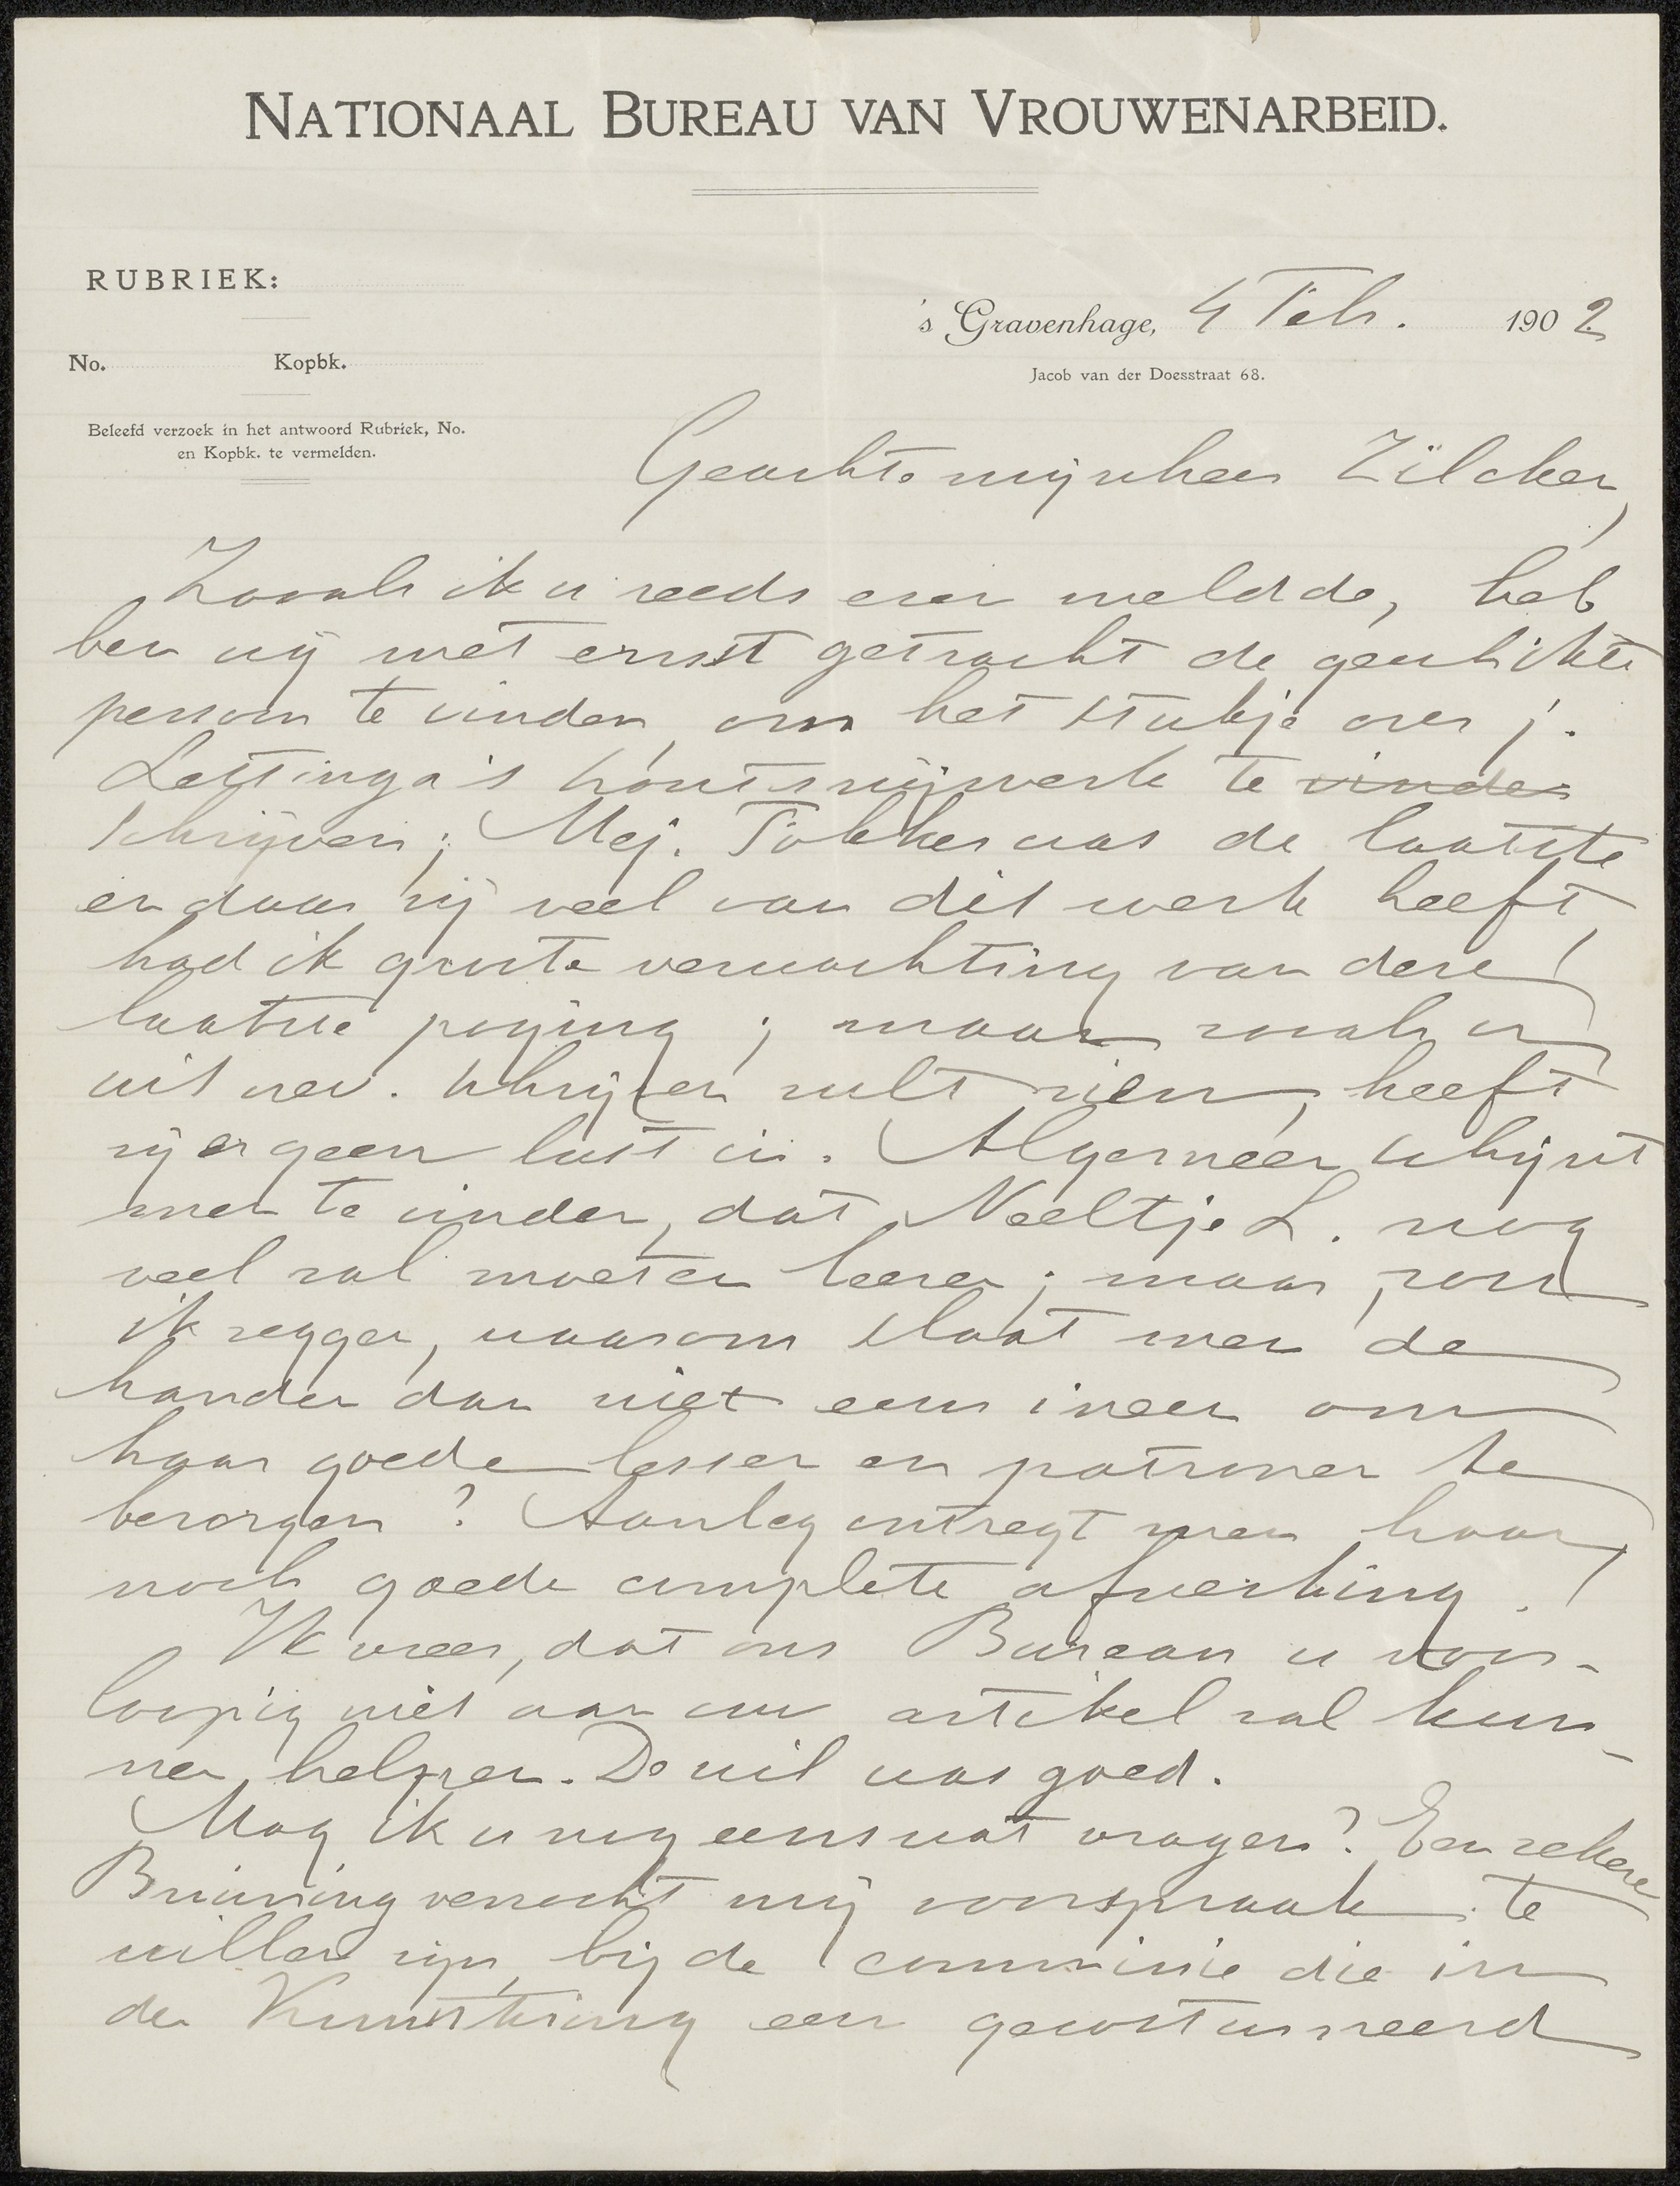 NATIONAAL BUREAU VAN VROUWENARBEID.
RUBRIEK:
's Gravenhage, 4 Feb. 1902
No. Kopbk.
Jacob van der Doesstraat 68.
Beleefd verzoek in het antwoord Rubriek, No.
en Kopbk. te vermelden.
Geachte mijnheer Zilcken,
Zooals ik u reeds even meldde, heb
ben wij met ernst getracht de geschikte
persoon te vinden om het stukje over j.
Lettinga's houtsnijwerk te vinden
schrijven; Mej. Tobbes was de laatste
en daar zij veel van dit werk heeft,
had ik groote verwachting van deze
laatste poging; maar zooals u
uit nev. schrijven zult zien, heeft
zij er geen lust in. Algemeen schijnt
men te vinden, dat Neeltje L. nog
veel zal moeten leeren; maar, zou
ik zeggen, waarom slaat men de
handen dan niet eens ineen om
haar goede lessen en patronen te
bezorgen? Aanleg ontzegt men haar
noch goede complete afwerking.!
Ik vrees, dat ons Bureau u voor-
loopig niet aan uw artikel zal kun-
nen helpen. De wil was goed.
Mag ik u nog eens wat vragen? Een zekere
verzocht mij voorspraak te
willen zijn bij de commissie die in
den Kunstkring een gecostumeerd